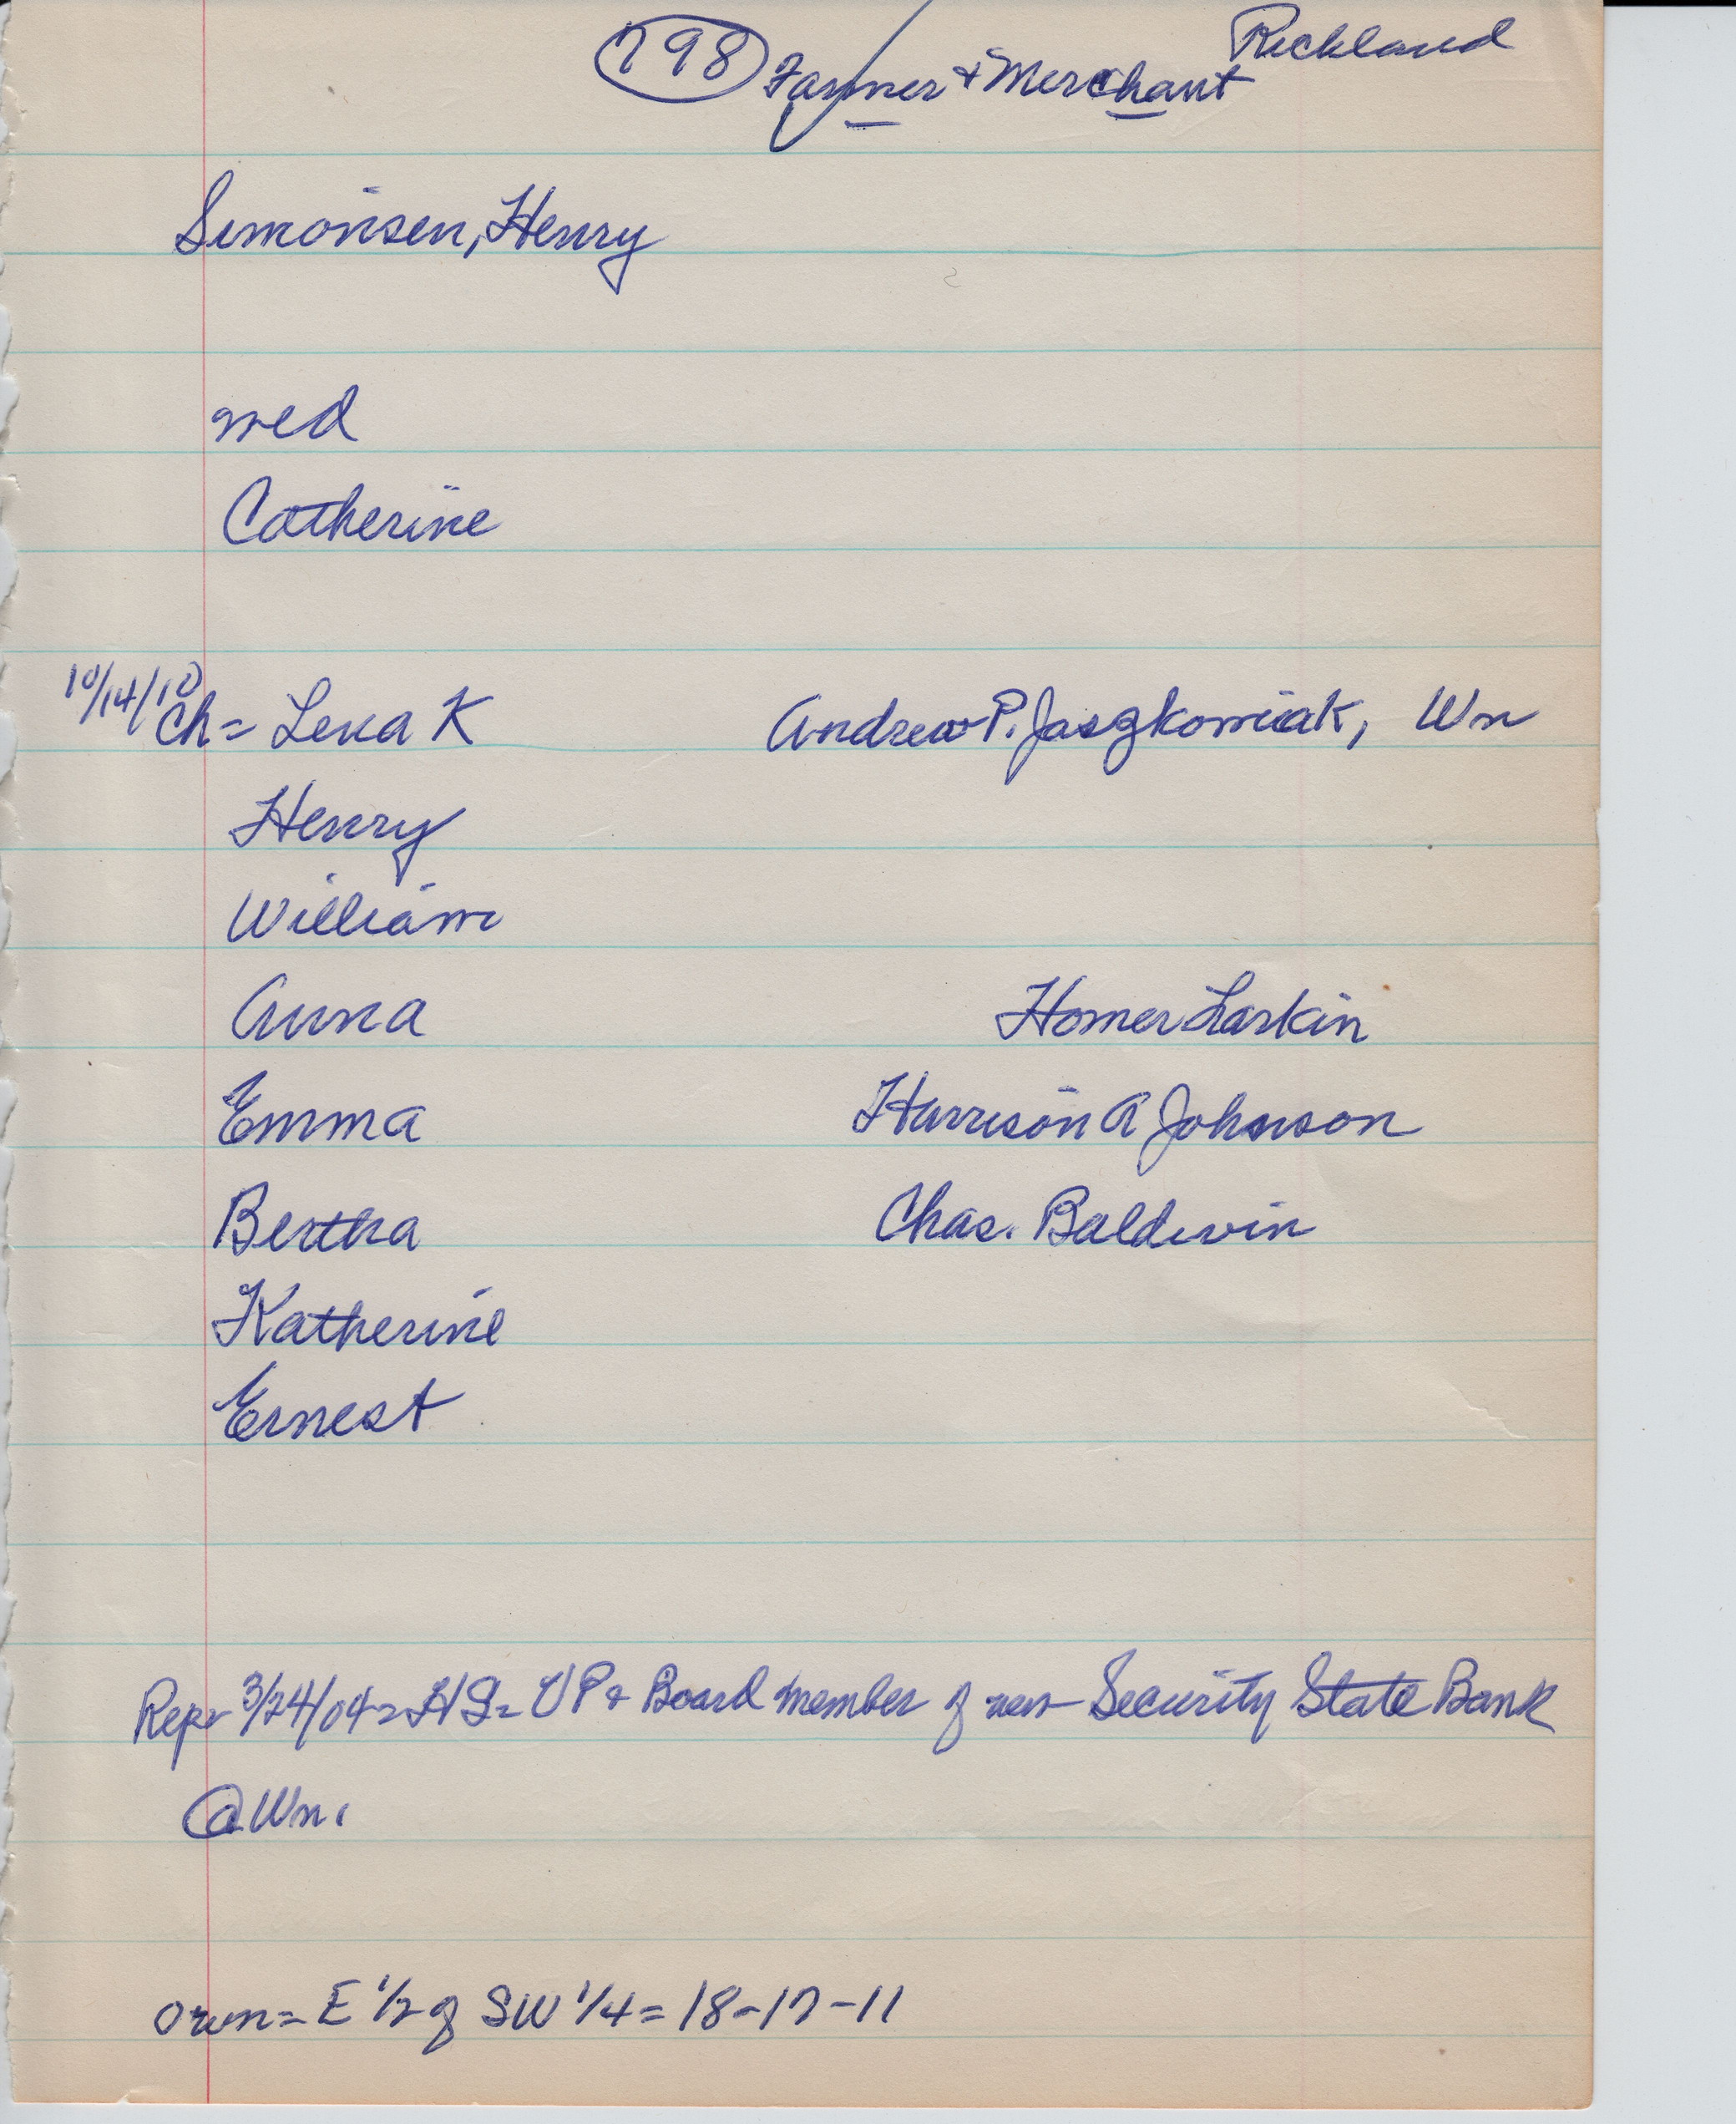 798 Farmer + Merchant Richland
Simonsen, Henry
med
Catherine
10/14/10
Ch= Lena K Andrew P. Jaszkowiak, Wm
Henry
William
Anna Homer Larkin
Emma Harrison A Johnson
Bertha Chas. Baldwin
Katherine
Ernest
Rep= 3/24/04= HS= VP + Board member of new Security State Bank
@ Wm.
own= E 1/2 of SW 1/4 = 18-17-11